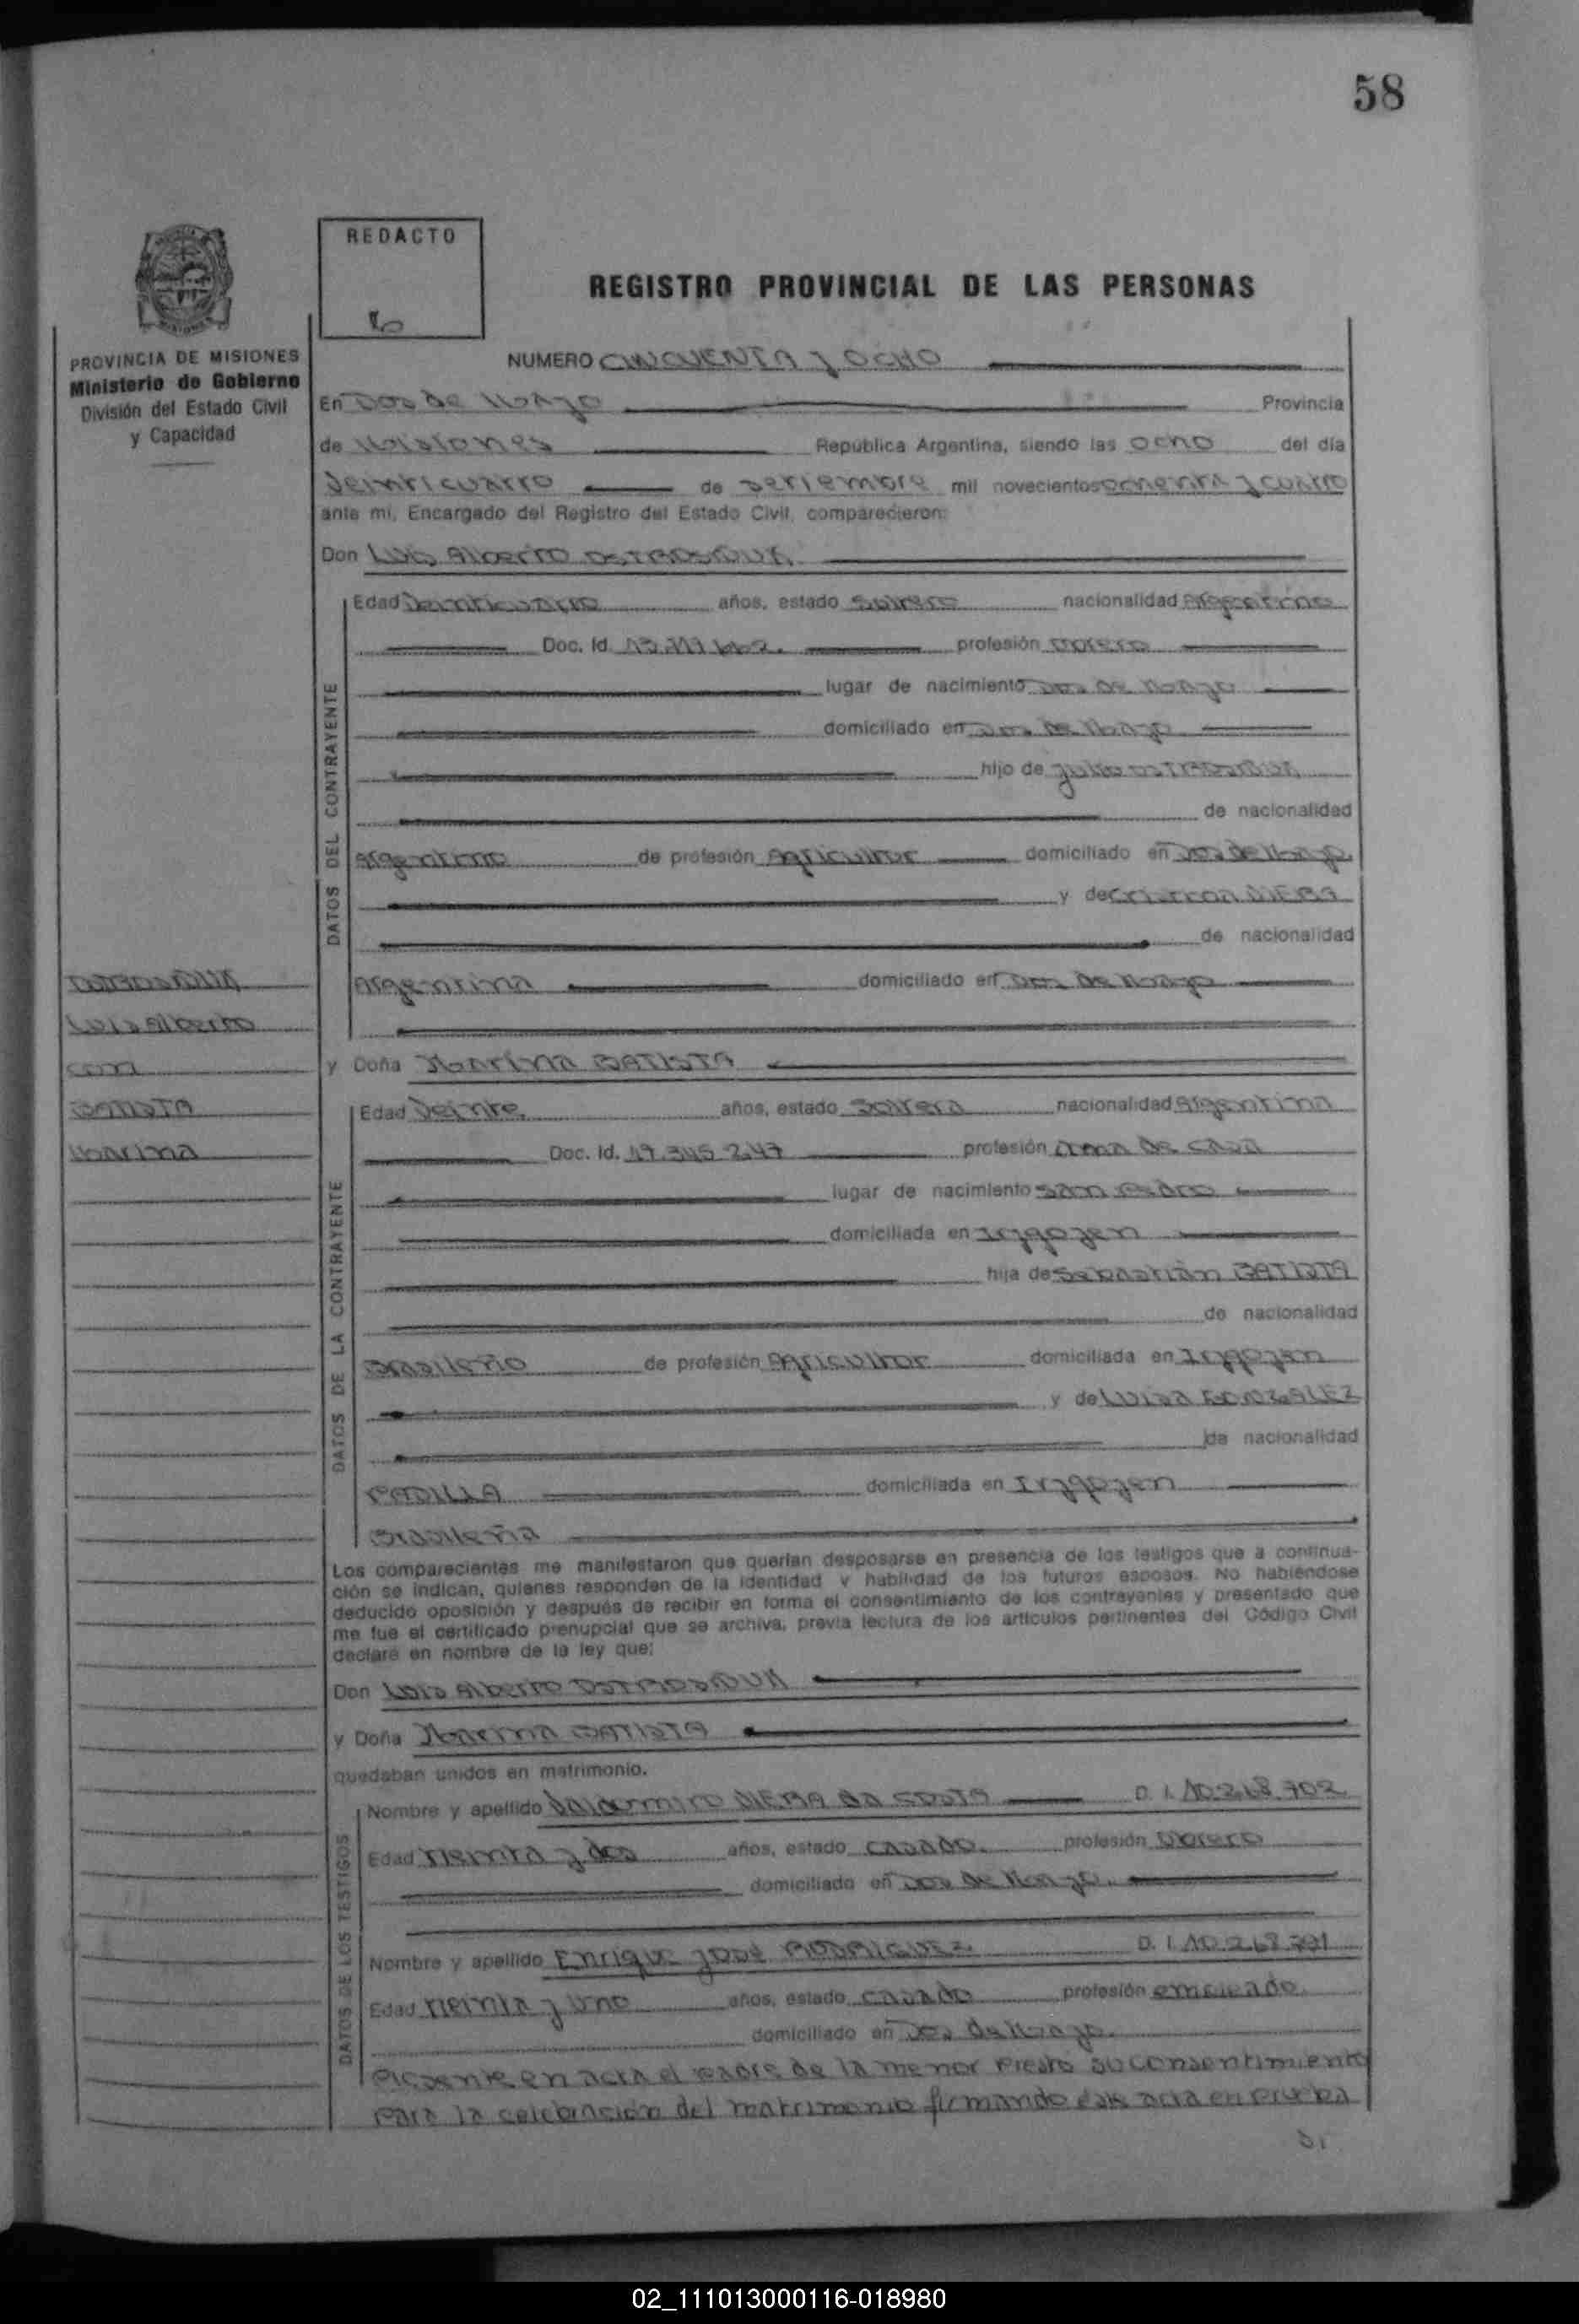 58
REDACTO
REGISTRO PROVINCIAL DE LAS PERSONAS
PROVINCIA DE MISIONES
Ministerio de Gobierno
División del Estado Civil
y Capacidad
NUMERO CINCUENTA y OCHO
En Dos de Mayo Provincia
de Misiones República Argentina, siendo las ocho del día
Veinticuatro de Septiembre mil novecientos ochenta y cuatro
ante mi, Encargado del Registro del Estado Civil, comparecieron:
Don Luis Alberto
DATOS DEL CONTRAYENTE
Edad Veinticuatro años, estado Soltero nacionalidad Argentino
Doc. Id. profesión Obrero
lugar de nacimiento Dos de Mayo
domiciliado en Dos de Mayo
hijo de Julio
de nacionalidad
Argentino de profesión Agricultor domiciliado en Dos de Mayo
y de Cristina
de nacionalidad
Argentina domiciliado en Dos de Mayo
Luis Alberto
con
BATISTA
Marina
y Doña Marina BATISTA
DATOS DE LA CONTRAYENTE
Edad Veinte años, estado Soltera nacionalidad Argentina
Doc. Id. 19.345.247 profesión Ama de casa
lugar de nacimiento San Pedro
domiciliada en Irygoyen
hija de Sebastián BATISTA
de nacionalidad
Brasileño de profesión Agricultor domiciliada en Irygoyen
y de Luisa GONZALEZ
de nacionalidad
PADILLA domiciliada en Irygoyen
Brasileña
Los comparecientes me manifestaron que querían desposarse en presencia de los testigos que a continua-
ción se indican, quienes responden de la identidad y habilidad de los futuros esposos. No habiéndose
deducido oposición y después de recibir en forma el consentimiento de los contrayentes y presentado que
me fue el certificado prenupcial que se archiva, previa lectura de los artículos pertinentes del Código Civil
declaré en nombre de la ley que:
Don Luis Alberto
y Doña Marina BATISTA
quedaban unidos en matrimonio.
DATOS DE LOS TESTIGOS
Nombre y apellido DA COSTA D. I. 10.268.702
Edad treinta y dos años, estado casado profesión Obrero
domiciliado en Dos de Mayo.
Nombre y apellido Enrique José RODRIGUEZ D. I. 10.268.791
Edad treinta y uno años, estado casado profesión empleado
domiciliado en Dos de Mayo.
Presente en acta el padre de la menor prestó su consentimiento
para la celebración del matrimonio firmando este acta en prueba
02_111013000116-018980